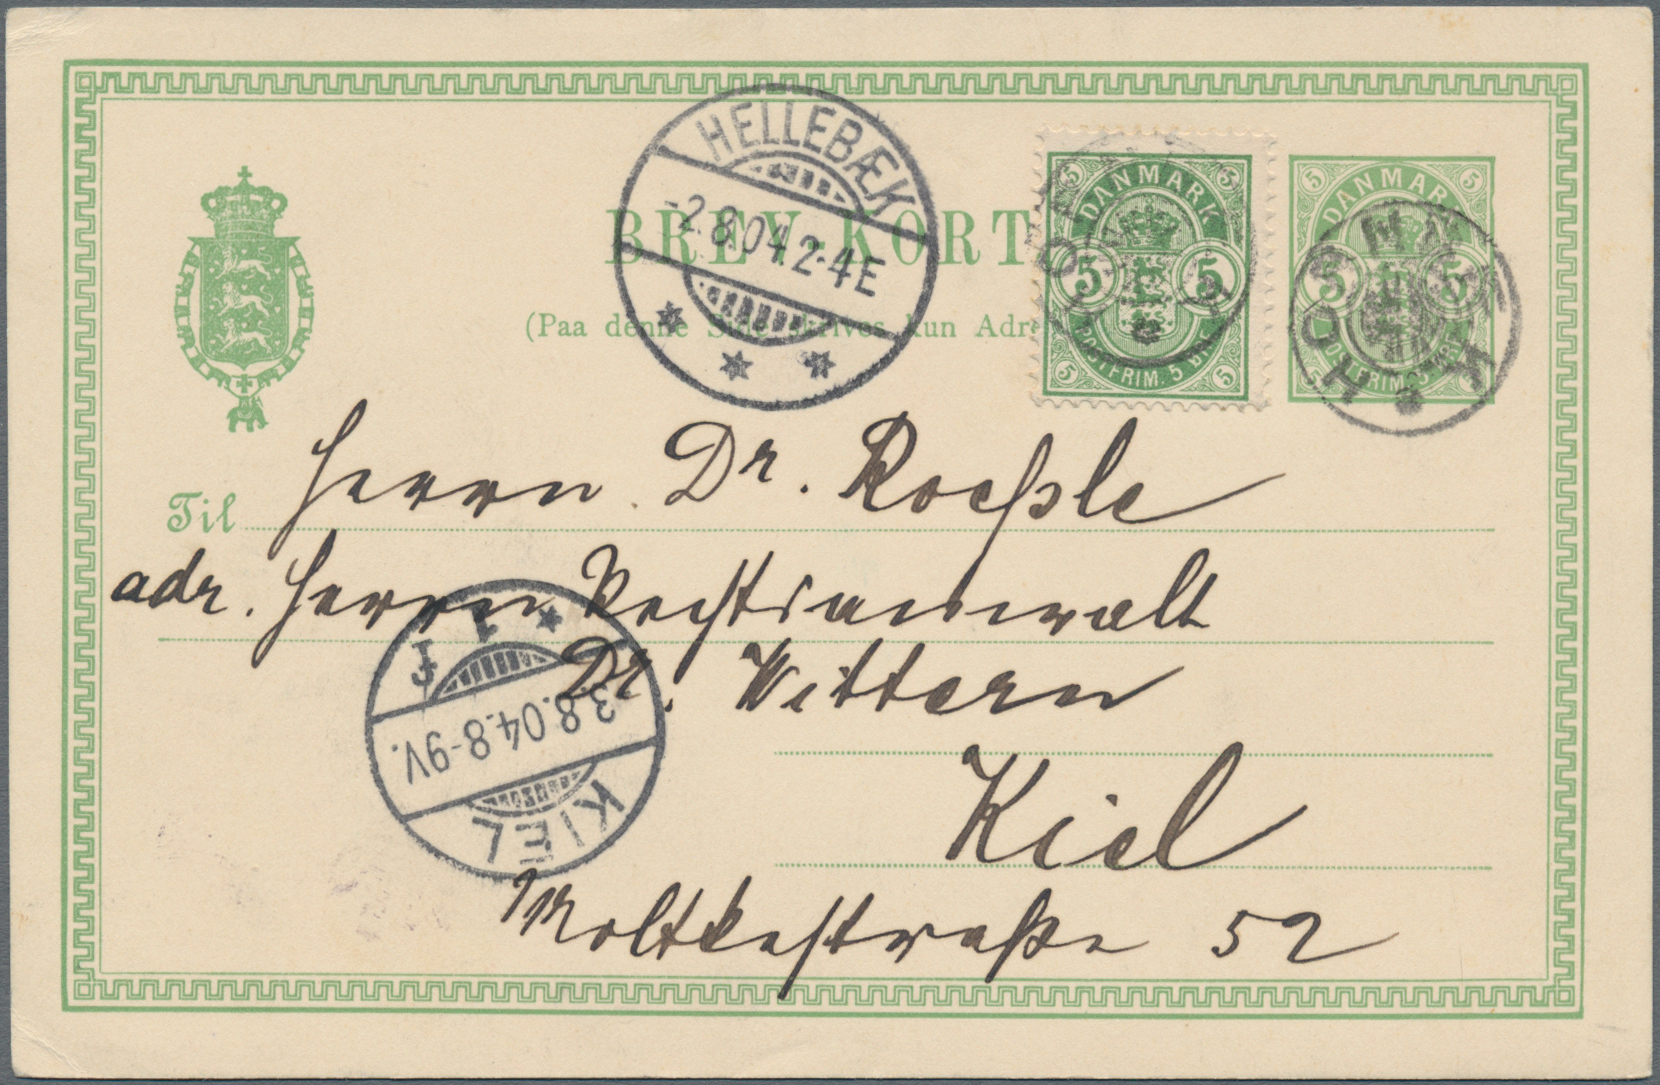 HELLEBÆK
-2.8.04.2-4E
BREV-KORT
(Paa denne Side skrives kun Adre
DANMARK
5 5
POSTFRIM. 5
DANMARK
5 5
POSTFRIM. 5
HORNBÆK
Til Herrn Dr. Roeßle
adr. Herrn Rechtsanwalt
Dr. Wittern
Kiel
Moltkestraße 52
KIEL
3.8.04.8-9V.
1